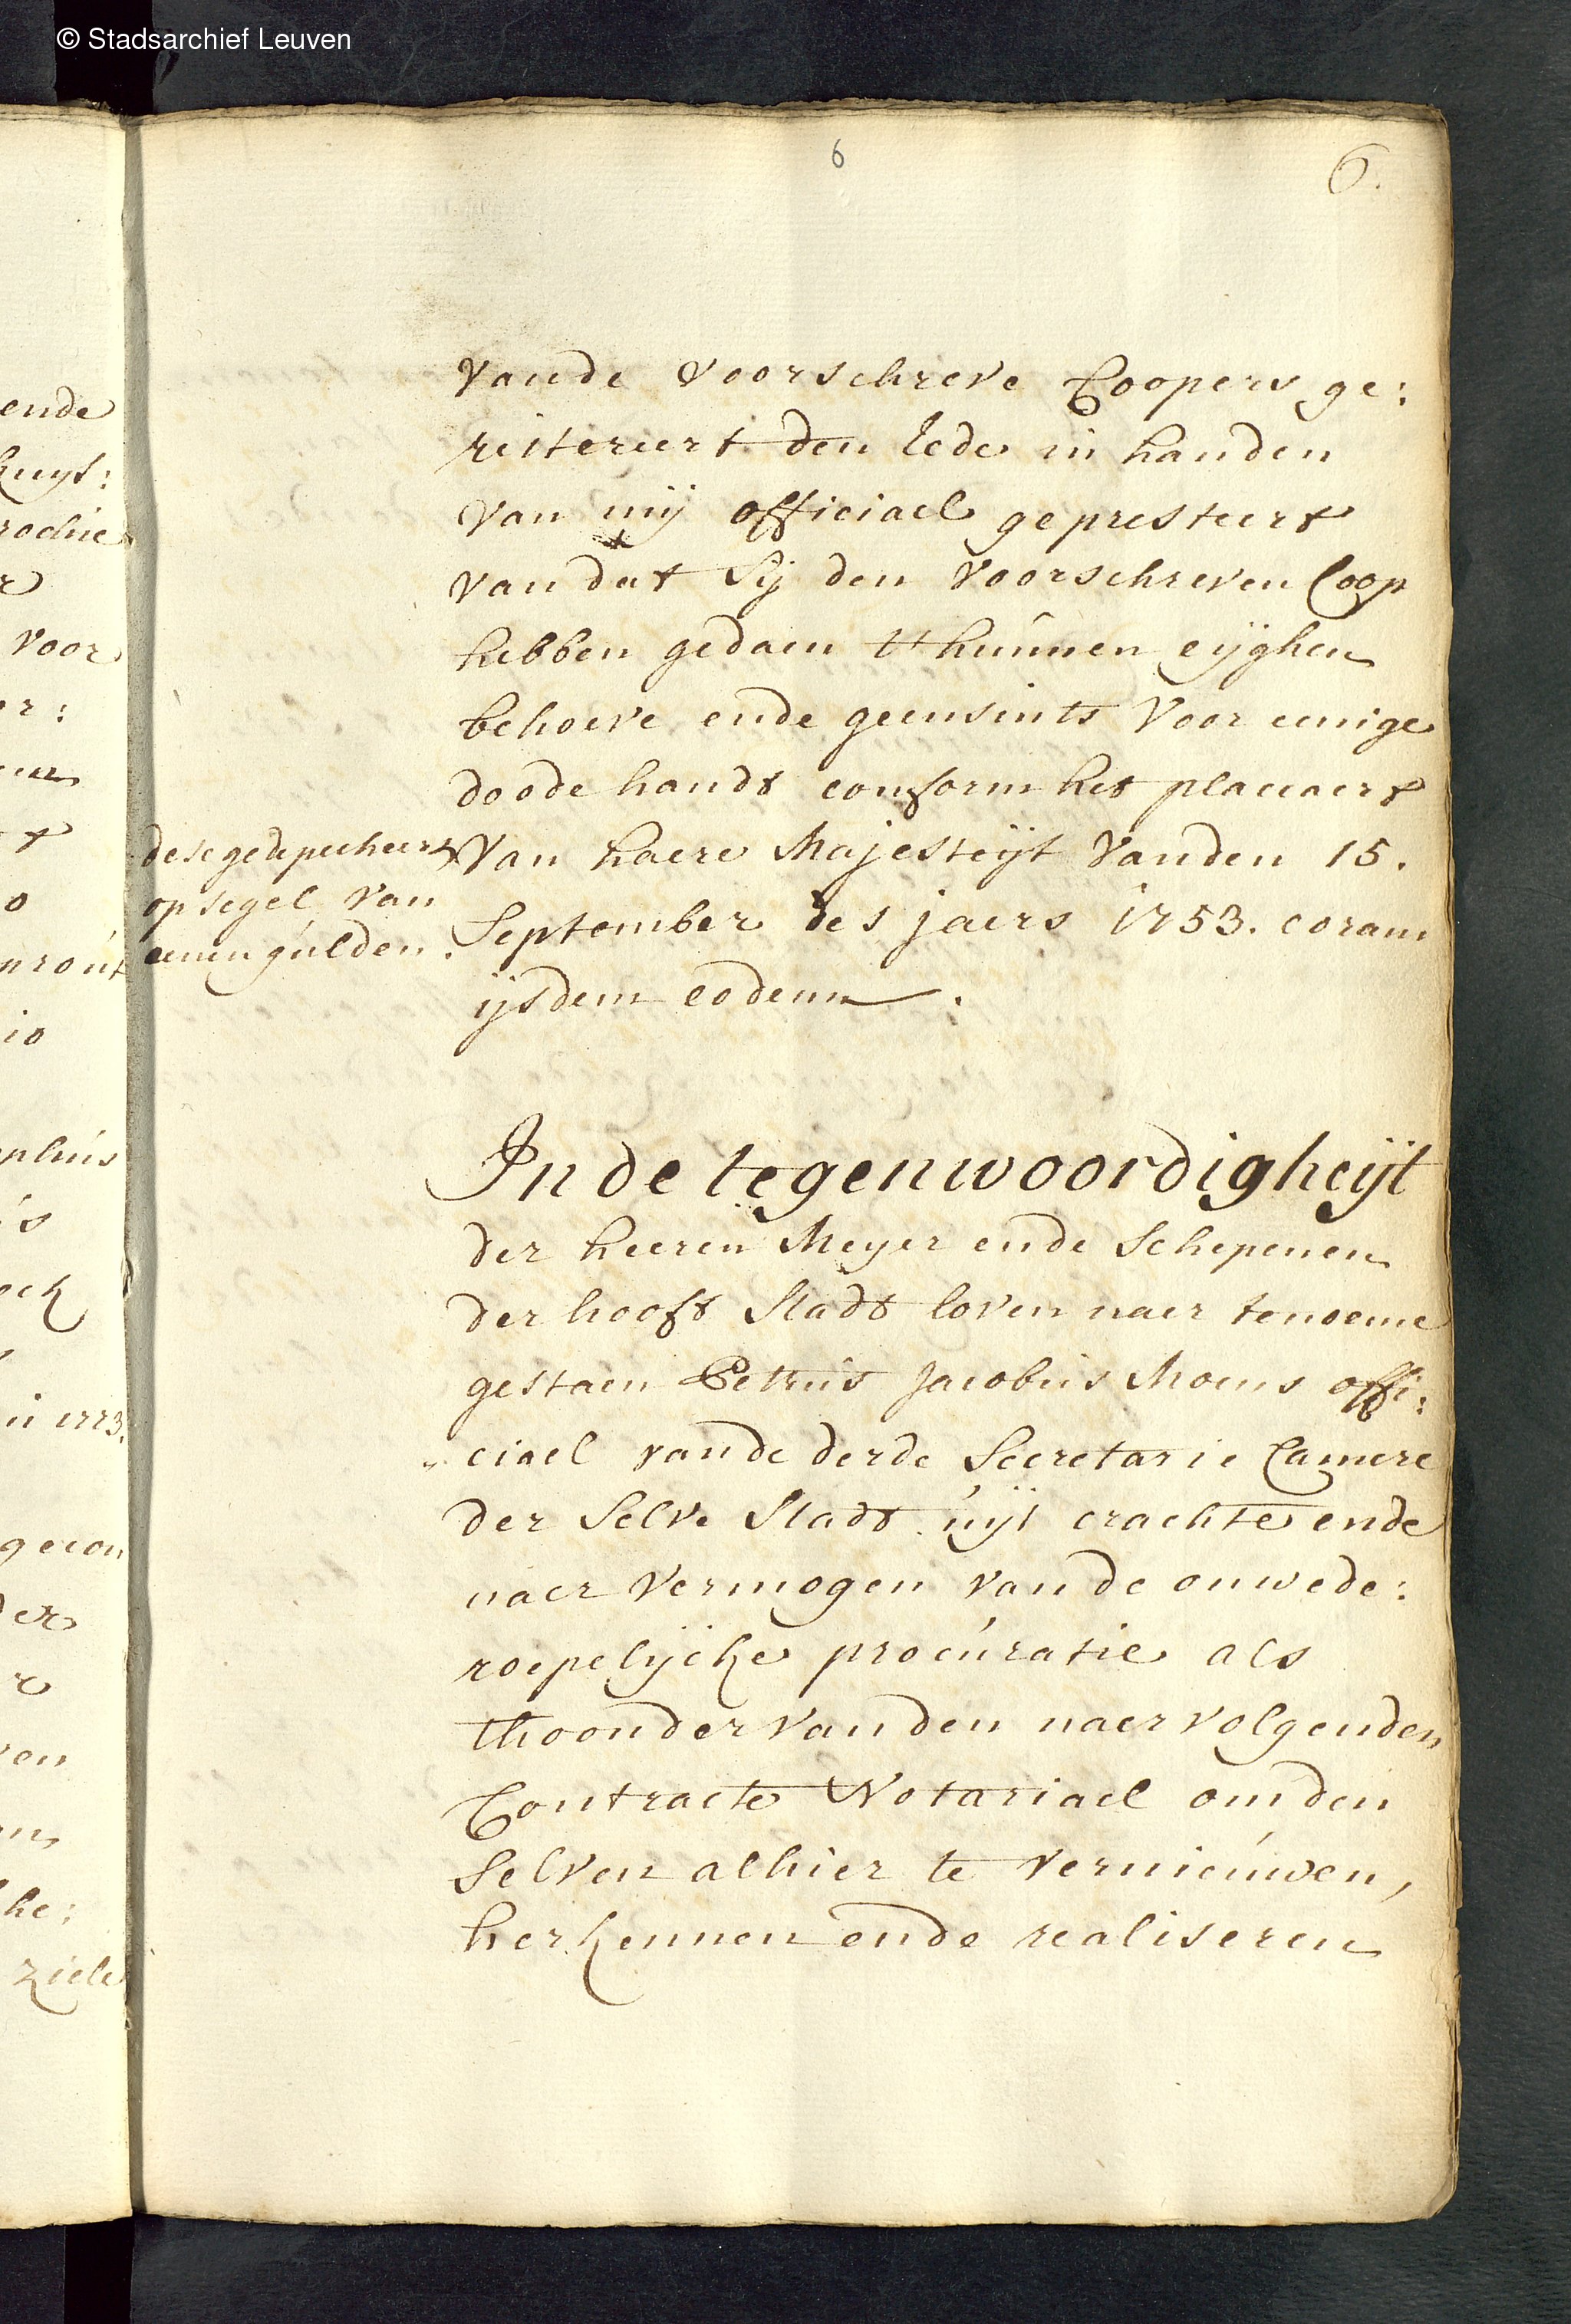 © Stadsarchief Leuven
6
6.
ende
voor
en 1773.
ziele
vande voorschreve Coopers ge:
reitereert den Eedt in handen
van mij officiael gepresteert
van dat sij den voorschreven Coop
hebben gedaen t'hunnen eijghen
behoeve ende geensints voor eenige
doode handt conform het placcaert
van haere Majesteijt vanden 15.
September des jaers 1753. coram
ijsdem eodem.
dese gedepecheert
op segel van
eenen gulden.
In de tegenwoordigheijt
der heeren Meyer ende Schepenen
der hooft Stadt loven naer tenoeme
gestaen Petrus Jacobus Moens offi:
ciael vande derde Secretarie Camere
der Selve Stadt uijt crachte ende
naer vermogen van de onwede:
roepelijcke procuratie als
thoonder van den naervolgenden
Contracte Notariael om den
Selven alhier te vernieuwen,
herkennen ende realiseren